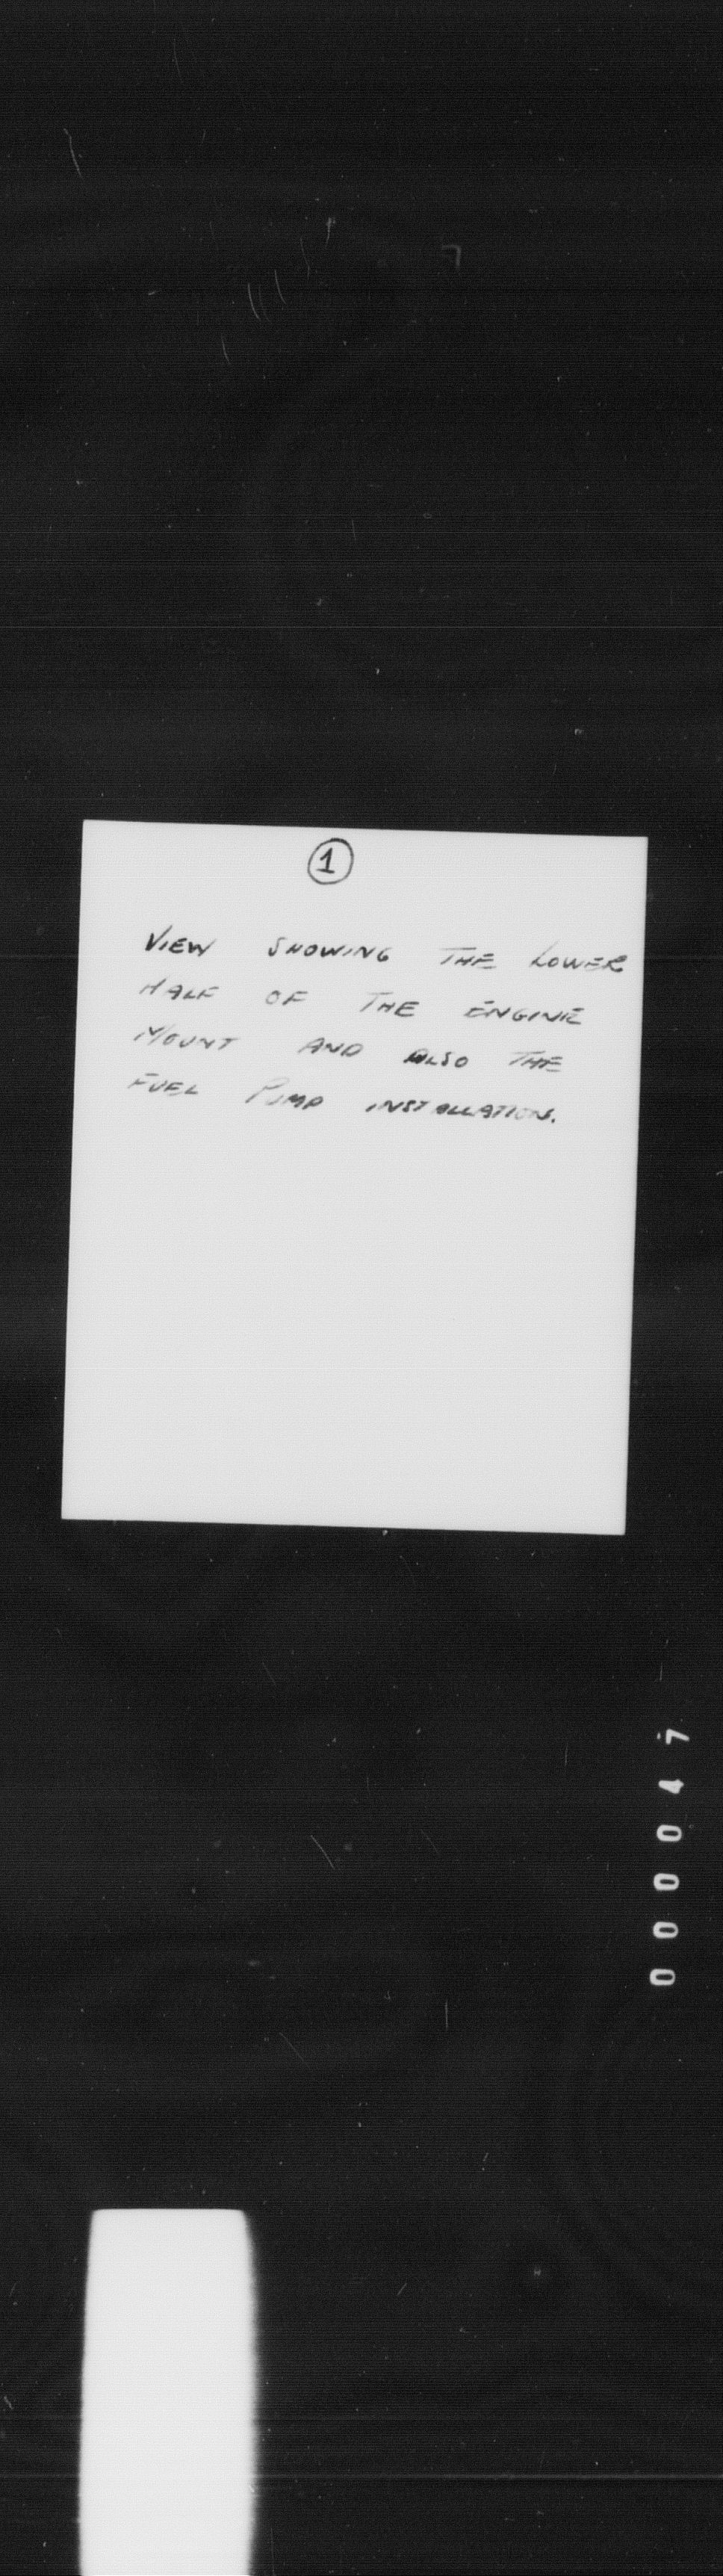 1
VIEW SHOWING THE LOWER
HALF OF THE ENGINE
MOUNT AND ALSO THE
FUEL PUMP INSTALLATION.
000047